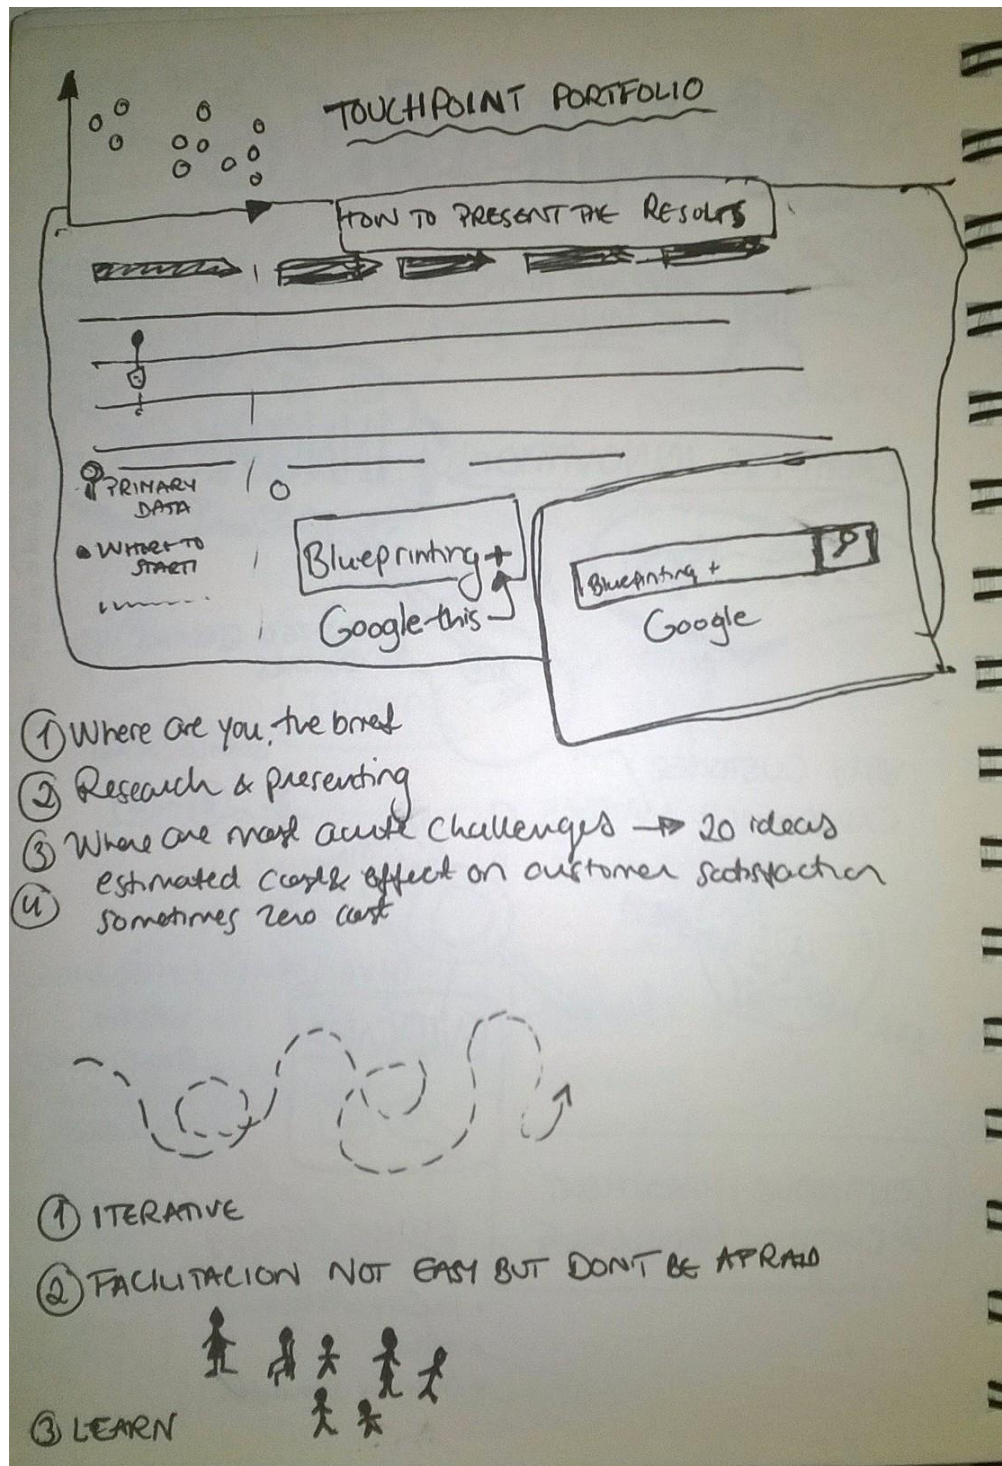 TOUCHPOINT PORTFOLIO
HOW TO PRESENT THE RESULTS
PRIMARY
DATA
WHERE TO
START!
Blueprinting +
Google this
Blueprinting +
Google
① Where are you, the brief
② Research & presenting
③ Where are most acute challenges → 20 ideas
estimated cost & effect on customer satisfaction
④ sometimes zero cost
① ITERATIVE
② FACILITACION NOT EASY BUT DONT BE AFRAID
③ LEARN